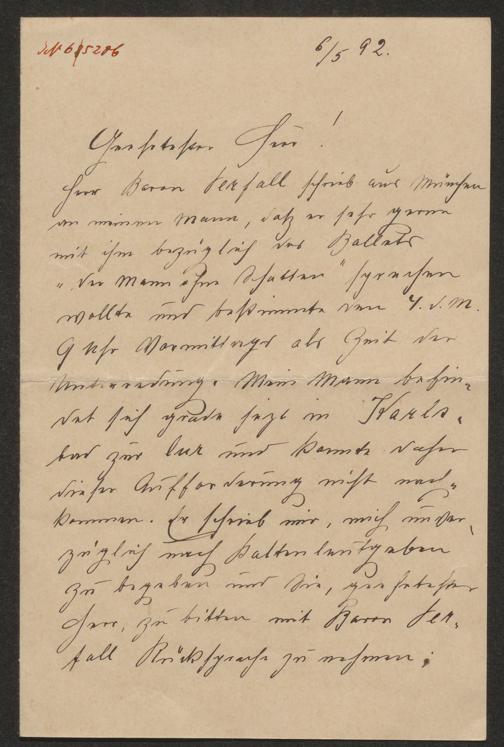 6/5 92.
Geehrtester Herr!
Herr Baron Perfall schrieb aus München
an meinen Mann, daß er sehr gerne
mit ihm bezüglich des Ballets
"der Mann ohne Schatten" sprechen
wollte und bestimmte den 4. d. M.
9 Uhr Vormittags als Zeit der
Unterredung. Mein Mann befin-
det sich grade jetzt in Karls-
bad zur Cur und konnte daher
dieser Aufforderung nicht nach-
kommen. Er schrieb mir, mich unver-
züglich nach Kaltenleutgeben
zu begeben und Sie, geehrtester
Herr, zu bitten mit Baron Per-
fall Rücksprache zu nehmen;